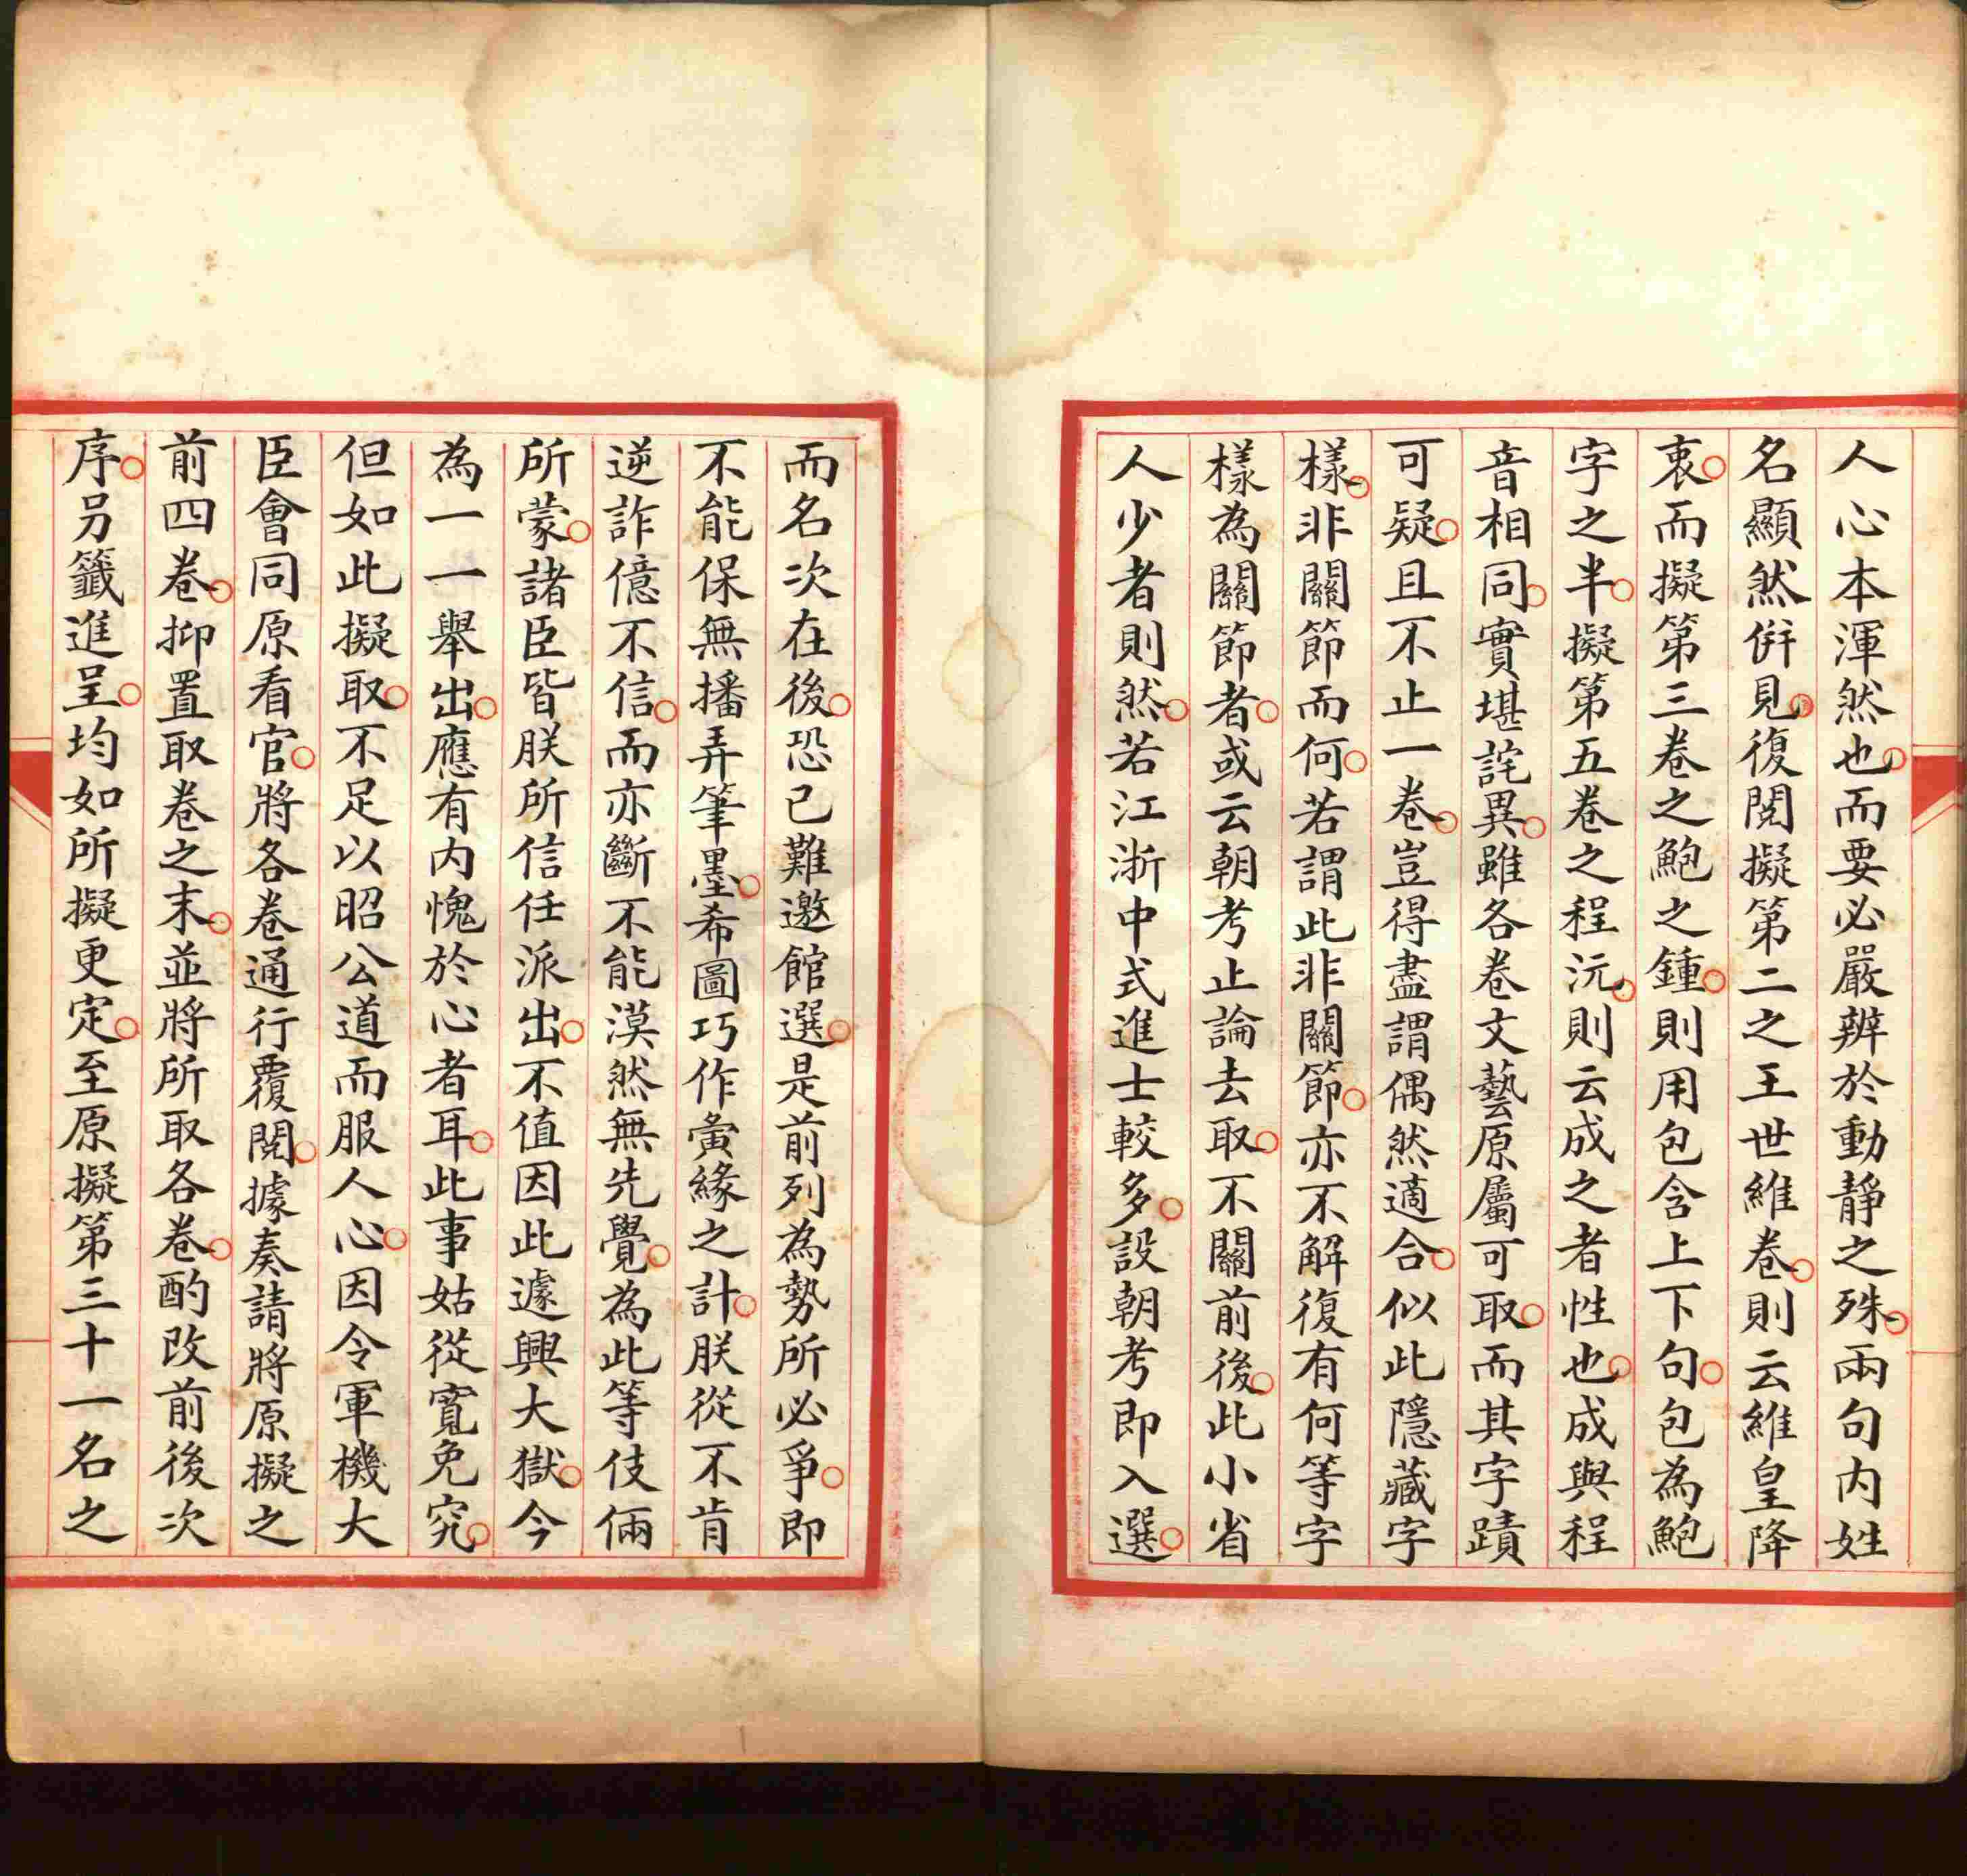 人心本渾然也而要必嚴辨於動靜之殊兩句内姓
名顯然倂見復閱擬第二之王世維卷則云維皇降
衷而擬第三卷之鮑之鍾則用包含上下句包為鮑
字之半擬第五卷之程沅則云成之者性也成與程
音相同實堪詫異雖各卷文藝原屬可取而其字蹟
可疑且不止一卷豈得盡謂偶然適合似此隱藏字
樣非關節而何若謂此非關節亦不解復有何等字
樣為關節者或云朝考止論去取不關前後此小省
人少者則然若江浙中式進士較多設朝考即入選
而名次在後恐已難邀館選是前列為勢所必爭即
不能保無播弄筆墨希圖巧作夤緣之計朕從不肯
逆詐億不信而亦斷不能漠然無先覺為此等伎倆
所蒙諸臣皆朕所信任派出不值因此遽興大獄今
為一一舉出應有内愧於心者耳此事姑從寬免究
但如此擬取不足以昭公道而服人心因令軍機大
臣會同原看官將各卷通行覆閱據奏請將原擬之
前四卷抑置取卷之末並將所取各卷酌改前後次
序另籤進呈均如所擬更定至原擬第三十一名之